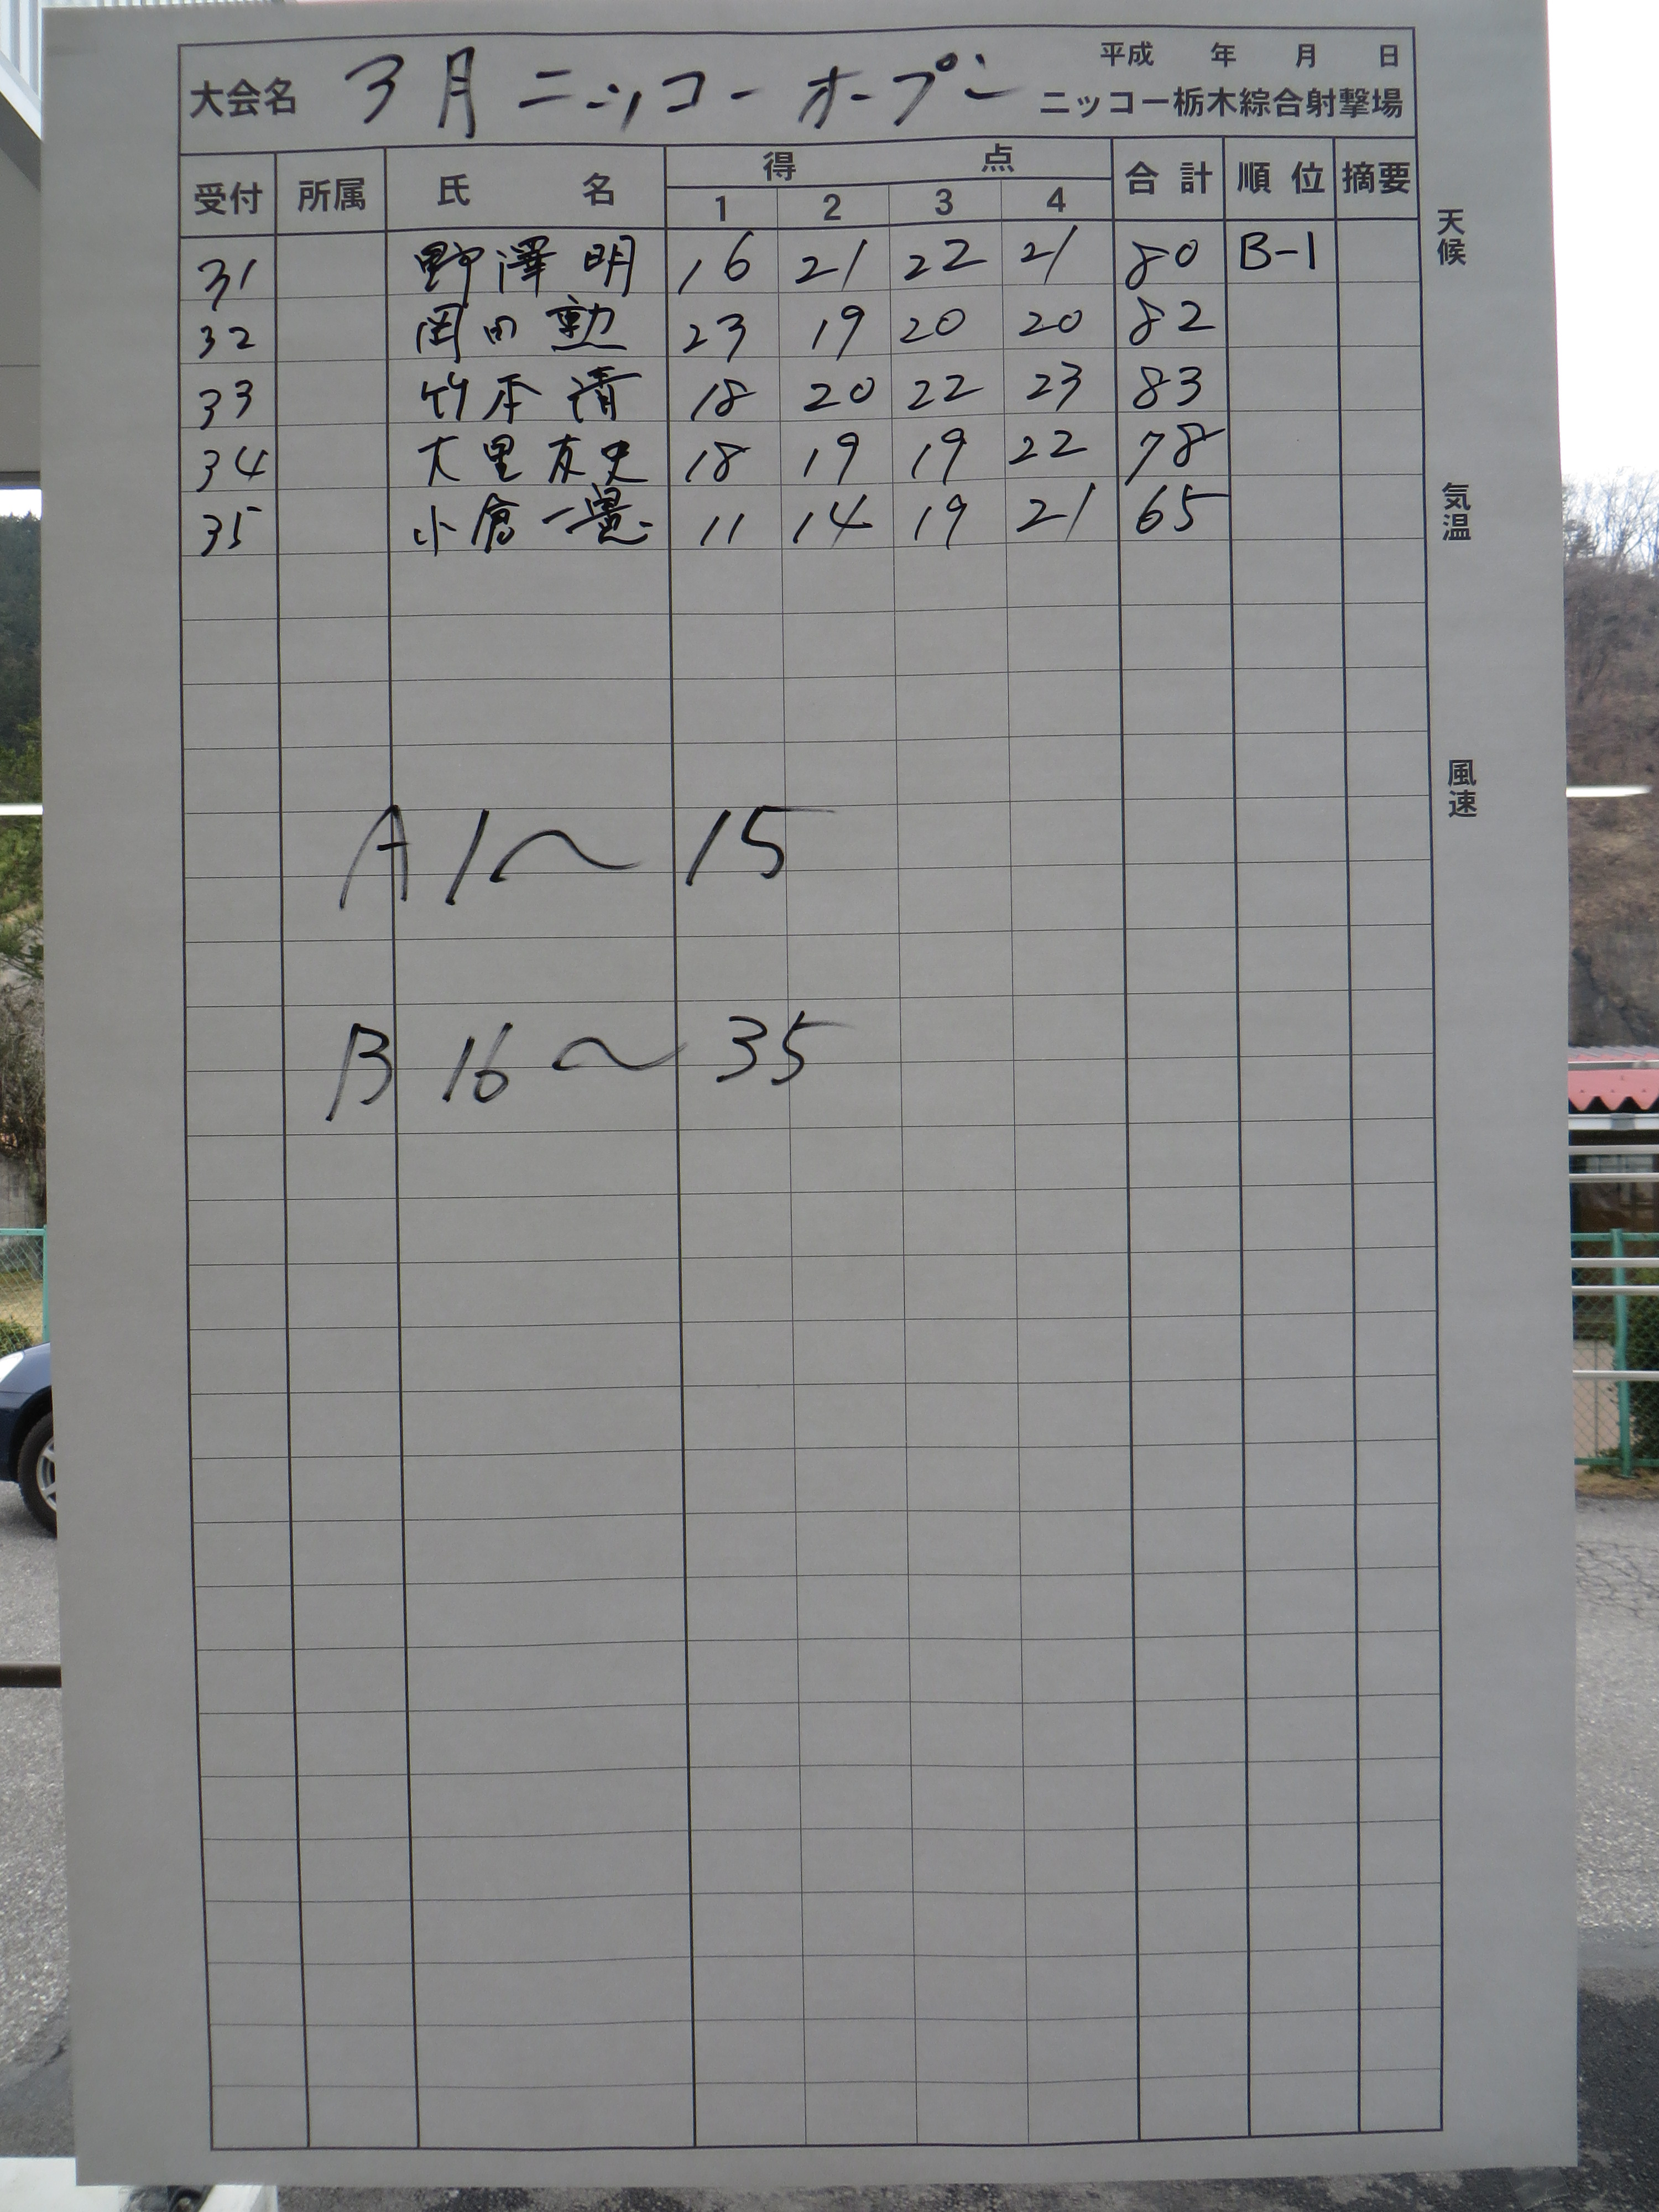 平成 年 月 日
大会名 3月 ニッコー オープン ニッコー栃木綜合射撃場
受付 所属 氏 名 得 点 合 計 順 位 摘要
1 2 3 4
31 野澤 明 16 21 22 21 80 B-1
32 岡田 勲 23 19 20 20 82
33 竹本 清 18 20 22 23 83
34 大里 友史 18 19 19 22 78
35 小倉 一 11 14 19 21 65
A 1〜15
B 16〜35
天候
気温
風速